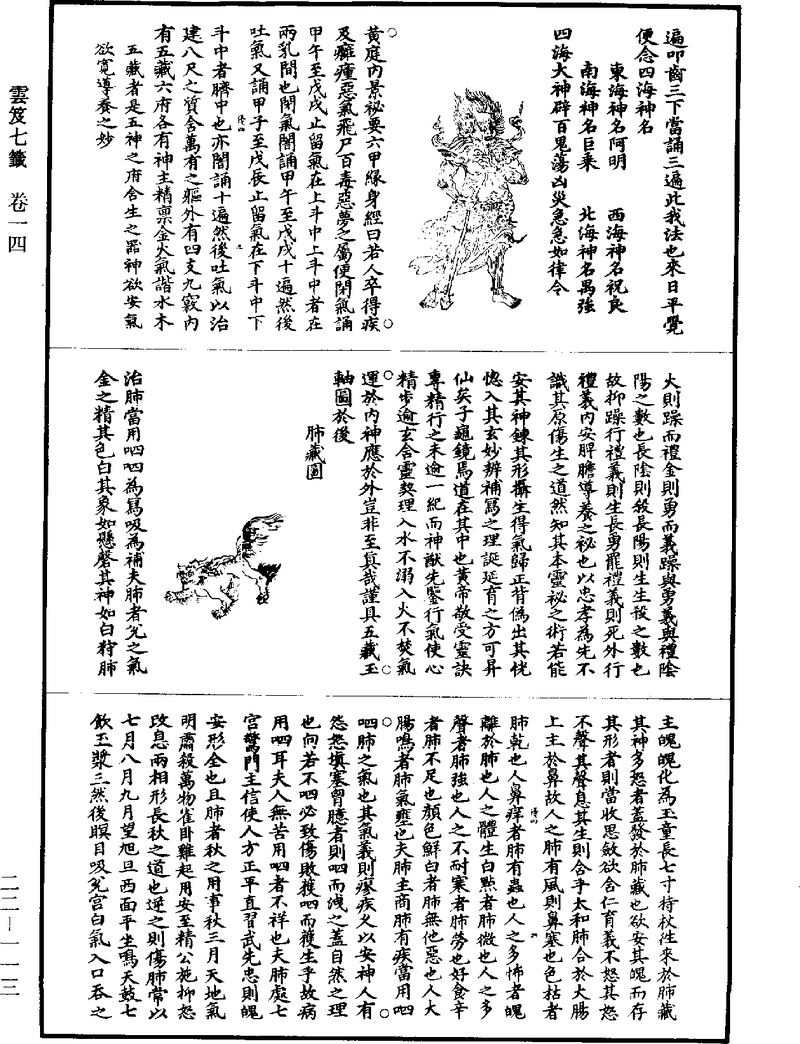 雲笈七籤 卷一四
遍叩齒三下當誦三遍此我法也來日平覺
便念四海神名
東海神名阿明 西海神名祝良
南海神名巨乘 北海神名禺強
四海大神辟百鬼蕩凶災急急如律令
黃庭內景祕要六甲緣身經曰若人卒得疾
及癰瘇惡氣飛尸百毒惡夢之屬便閉氣誦
甲午至戊戌止留氣在上斗中上斗中者在
兩乳間也閉氣闇誦甲午至戊戌十遍然後
吐氣又誦甲子至戊辰止留氣在下斗中下
斗中者臍中也亦闇誦十遍然後吐氣以治
建八尺之質含萬有之軀外有四支九竅內
有五藏六府各有神主精稟金火氣諧水木
五藏者是五神之府舍生之器神欲安氣
欲寬導養之妙
火則躁而禮金則勇而義躁與勇義與禮陰
陽之數也長陰則殺長陽則生生殺之數也
故抑躁行禮義則生長勇罷禮義則死外行
禮義內安脾膽導養之祕也以忠孝為先不
識其原傷生之道然知其本靈祕之術若能
安其神鍊其形攝生得氣歸正背偽出其恍
惚入其玄妙辨補寫之理誕延育之方可昇
仙矣子龜鏡焉道在其中也黃帝敬受靈訣
專精行之未逾一紀而神猷先鑒行氣使心
精步逾玄合靈契理入水不溺入火不焚氣
運於內神應於外豈非至真哉謹具五藏玉
軸圖於後
肺藏圖
治肺當用呬呬為寫吸為補夫肺者兌之氣
金之精其色白其象如懸磬其神如白狩肺
主魄魄化為玉童長七寸持杖往來於肺藏
其神多怒者蓋發於肺藏也欲安其魄而存
其形者則當收思斂欲含仁育義不怒其怒
不聲其聲息其生則合乎太和肺合於大腸
上主於鼻故人之肺有風則鼻塞也色枯者
肺乾也人鼻痒者肺有蟲也人之多怖者魄
離於肺也人之體生白點者肺微也人之多
聲者肺強也人之不耐寒者肺勞也好食辛
者肺不足也顏色鮮白者肺無他惡也人大
腸鳴者肺氣壅也夫肺主商肺有疾當用呬
呬肺之氣也其氣義則瘳疾义以安神人有
怨怒填塞胷臆者則呬而洩之蓋自然之理
也向若不呬必致傷敗穫呬而獲生乎故病
用呬耳夫人無苦用呬者不祥也夫肺處七
宮驚門主信使人方正平直習武先忠則魄
安形全也且肺者秋之用事秋三月天地氣
明肅殺萬物雀臥雞起用安至精公施抑怒
改息兩相形長秋之道也逆之則傷肺常以
七月八月九月望旭旦西面平坐鳴天鼓七
飲玉漿三然後瞑目吸兌宮白氣入口吞之
二二—一一三